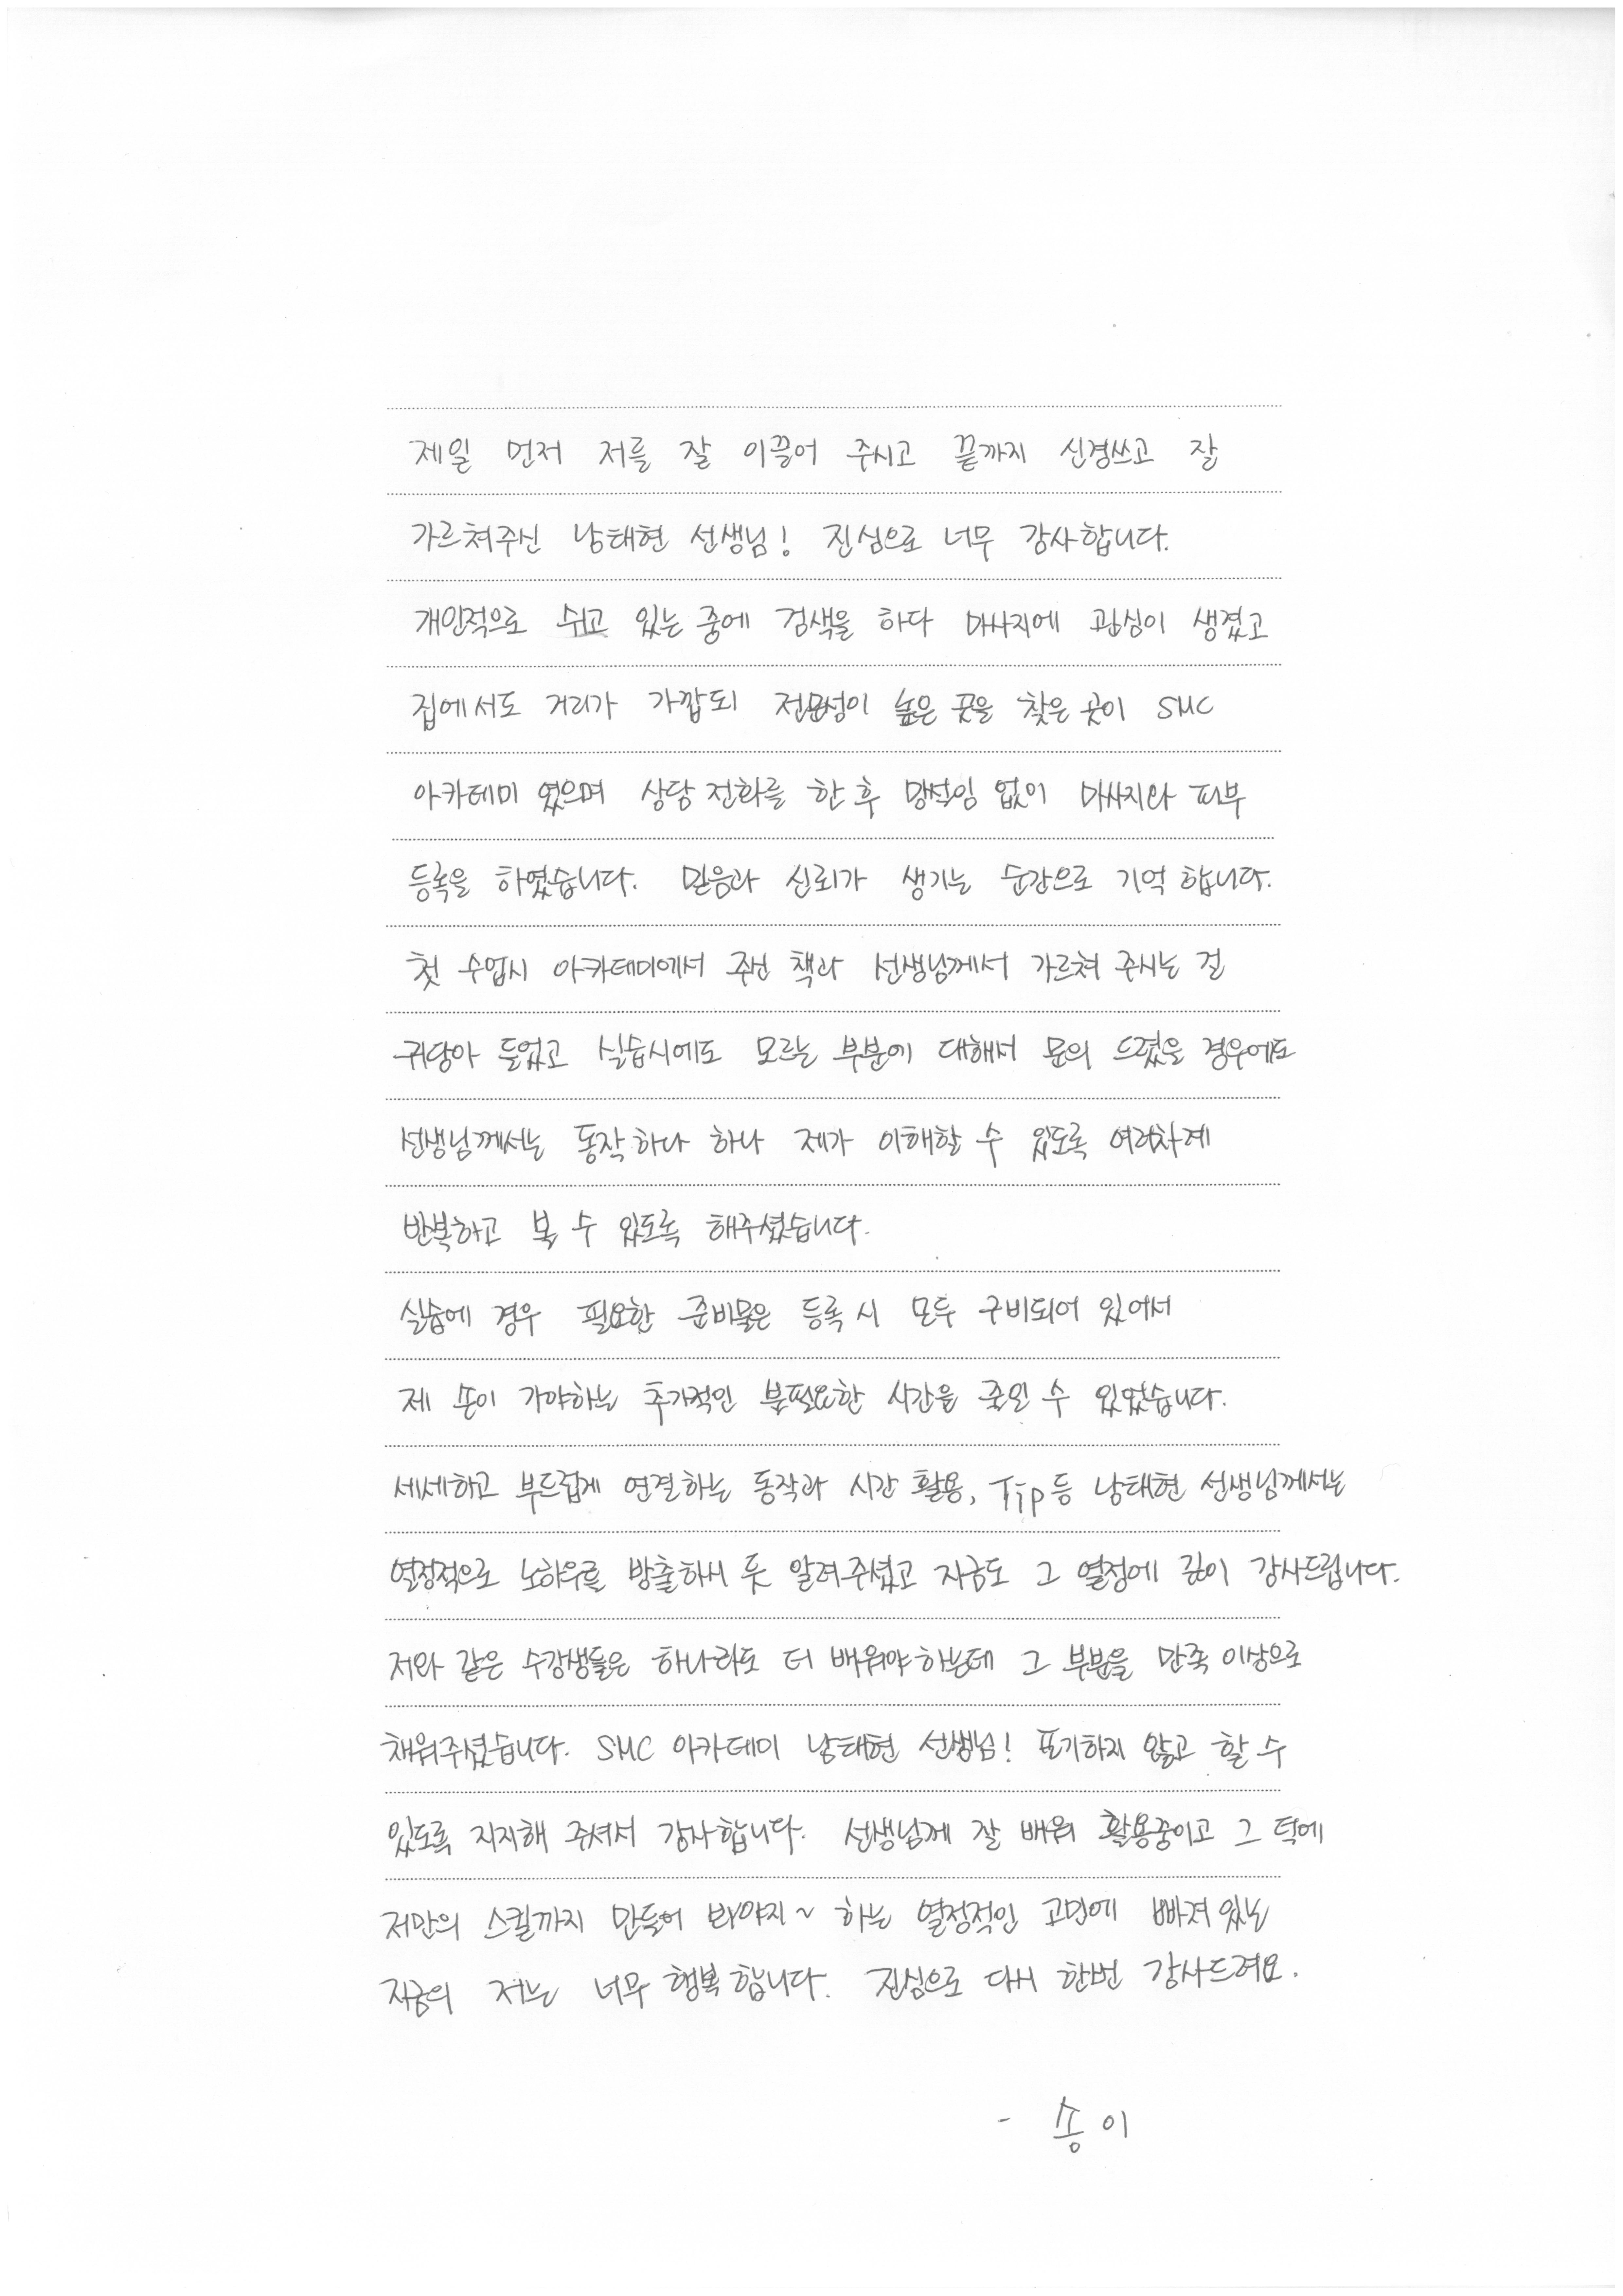 제일 먼저 저를 잘 이끌어 주시고 끝까지 신경쓰고 잘
가르쳐주신 남태현 선생님! 진심으로 너무 감사합니다.
개인적으로 쉬고 있는 중에 검색을 하다 마사지에 관심이 생겼고
집에서도 거리가 가깝되 전문성이 높은 곳을 찾은 곳이 SMC
아카데미 였으며 상담 전화를 한 후 망설임 없이 마사지와 피부
등록을 하였습니다. 믿음과 신뢰가 생기는 순간으로 기억 합니다.
첫 수업시 아카데미에서 주신 책과 선생님께서 가르쳐 주시는 걸
귀담아 들었고 실습시에도 모르는 부분에 대해서 문의 드렸을 경우에도
선생님께서는 동작 하나 하나 제가 이해할 수 있도록 여러차례
반복하고 볼 수 있도록 해주셨습니다.
실습에 경우 필요한 준비물은 등록 시 모두 구비되어 있어서
제 손이 가야하는 추가적인 불필요한 시간을 줄일 수 있었습니다.
세세하고 부드럽게 연결하는 동작과 시간 활용, Tip 등 남태현 선생님께서는
열정적으로 노하우를 방출하시 듯 알려주셨고 지금도 그 열정에 깊이 감사드립니다.
저와 같은 수강생들은 하나라도 더 배워야 하는데 그 부분을 만족 이상으로
채워주셨습니다. SMC 아카데미 남태현 선생님! 포기하지 않고 할 수
있도록 지지해 주셔서 감사합니다. 선생님께 잘 배워 활용중이고 그 덕에
저만의 스킬까지 만들어 봐야지~ 하는 열정적인 고민에 빠져 있는
지금의 저는 너무 행복 합니다. 진심으로 다시 한번 감사드려요.
- 송이